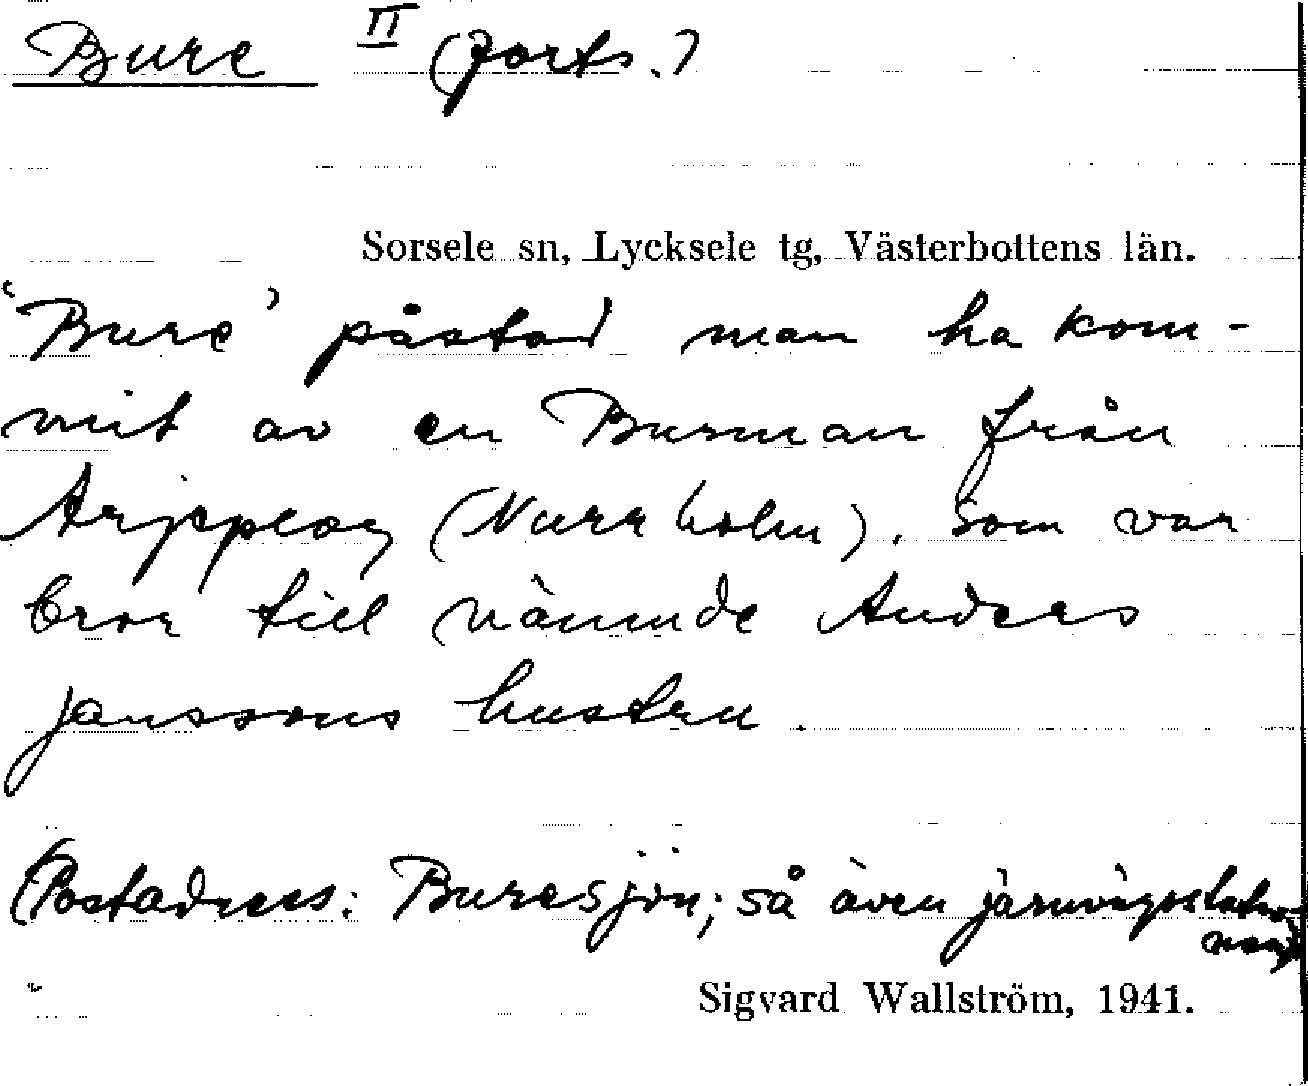 Bure II (forts.)
Sorsele sn, Lycksele tg, Västerbottens län.
'Bure' påstod man ha kom-
mit av en Burman från
Arjeplog (Norrholm), som var
bror till nämnde Anders
Janssons hustru.
(Postadress: Buresjön; så även järnvägsstatio-
nen)
Sigvard Wallström, 1941.